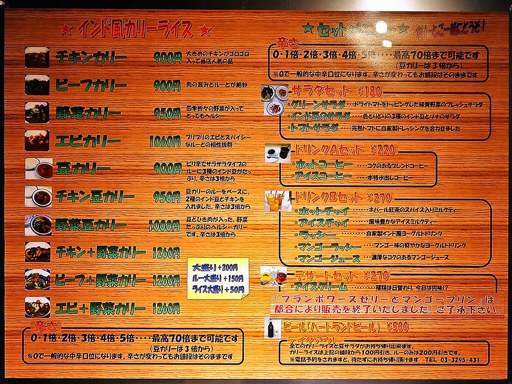 ★ インド風カリーライス ★
チキンカリー 900円 大きめのチキンがゴロゴロ
入って食べ応え
ビーフカリー 900円 肉の旨みとルーとが絶妙
野菜カリー 950円 四季折々の野菜が入って
とってもヘルシー
エビカリー 1060円 プリプリのエビとスパイシー
なルーとの相性抜群
豆カリー 900円 ピリ辛でサラサラタイプの
ルーに3種のインド豆が
たっぷり。辛さは3倍から
チキン豆カリー 950円 豆カリーのルーをベースに、
2種のインド豆とチキンを
入れました。辛さは3倍から
野菜豆カリー 1000円 豆とひき肉が入った、野菜
たっぷりのヘルシーカリー
です。辛さは3倍から
チキン+野菜カリー 1260円
ビーフ+野菜カリー 1260円
エビ+野菜カリー 1360円
大盛り+200円
ルー大盛り+150円
ライス大盛り+50円
辛さ
0・1倍・2倍・3倍・4倍・5倍・・・・最高70倍まで可能です
(豆カリーは3倍から)
※0で一般的な中辛口位になります。辛さが変わってもお値段はそのままです
★ セット ご一緒にどうぞ!
辛さ
0・1倍・2倍・3倍・4倍・5倍・・・・最高70倍まで可能です
(豆カリーは3倍から)
※0で一般的な中辛口位になります。辛さが変わってもお値段はそのままです
サラダセット ¥180
・グリーンサラダ ドライトマトをトッピングした緑黄野菜のフレッシュサラダ
・インド豆のサラダ 色とりどりの3種のインド豆とツナのサラダ
・トマトサラダ 完熟トマトに自家製ドレッシングを合わせました
ドリンクAセット ¥220
・ホットコーヒー コクのあるブレンドコーヒー
・アイスコーヒー 本格水出しコーヒー
ドリンクBセット ¥270
・ホットチャイ ネパール紅茶のスパイス入りミルクティ
・アイスチャイ 風味豊かなアイスミルクティ
・ラッシー 自家製インド風ヨーグルトドリンク
・マンゴーラッシー マンゴー味の爽やかなヨーグルトドリンク
・マンゴージュース 濃厚なコクのあるマンゴージュース
デザートセット ¥270
・アイスクリーム 種類は日替わり。今日は何味!?
「フランボワーズゼリーとマンゴープリン」は
都合により販売を終了いたしました。ご了承下さい。
ビール(ハートランドビール) ¥500
全てのカリーライスと豆サラダがお持ち帰り出来ます。
カリーライスは上記の値段から100円引き、ルーのみは200円引きです。
※電話予約をされますと、待たずにお持ち帰り頂けます TEL 03-3295-431